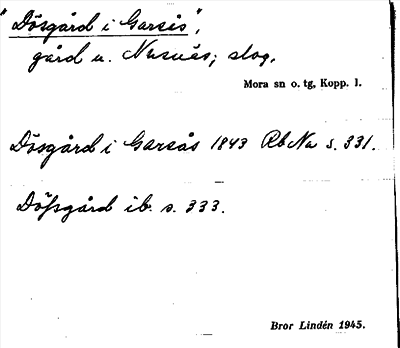 "Dösgård i Garsås",
gård u. Nusnäs; slog.
Mora sn o. tg, Kopp. l.
Dösgård i Garsås 1843 RbNa s. 331.
Döfsgård ib. s. 333.
Bror Lindén 1945.